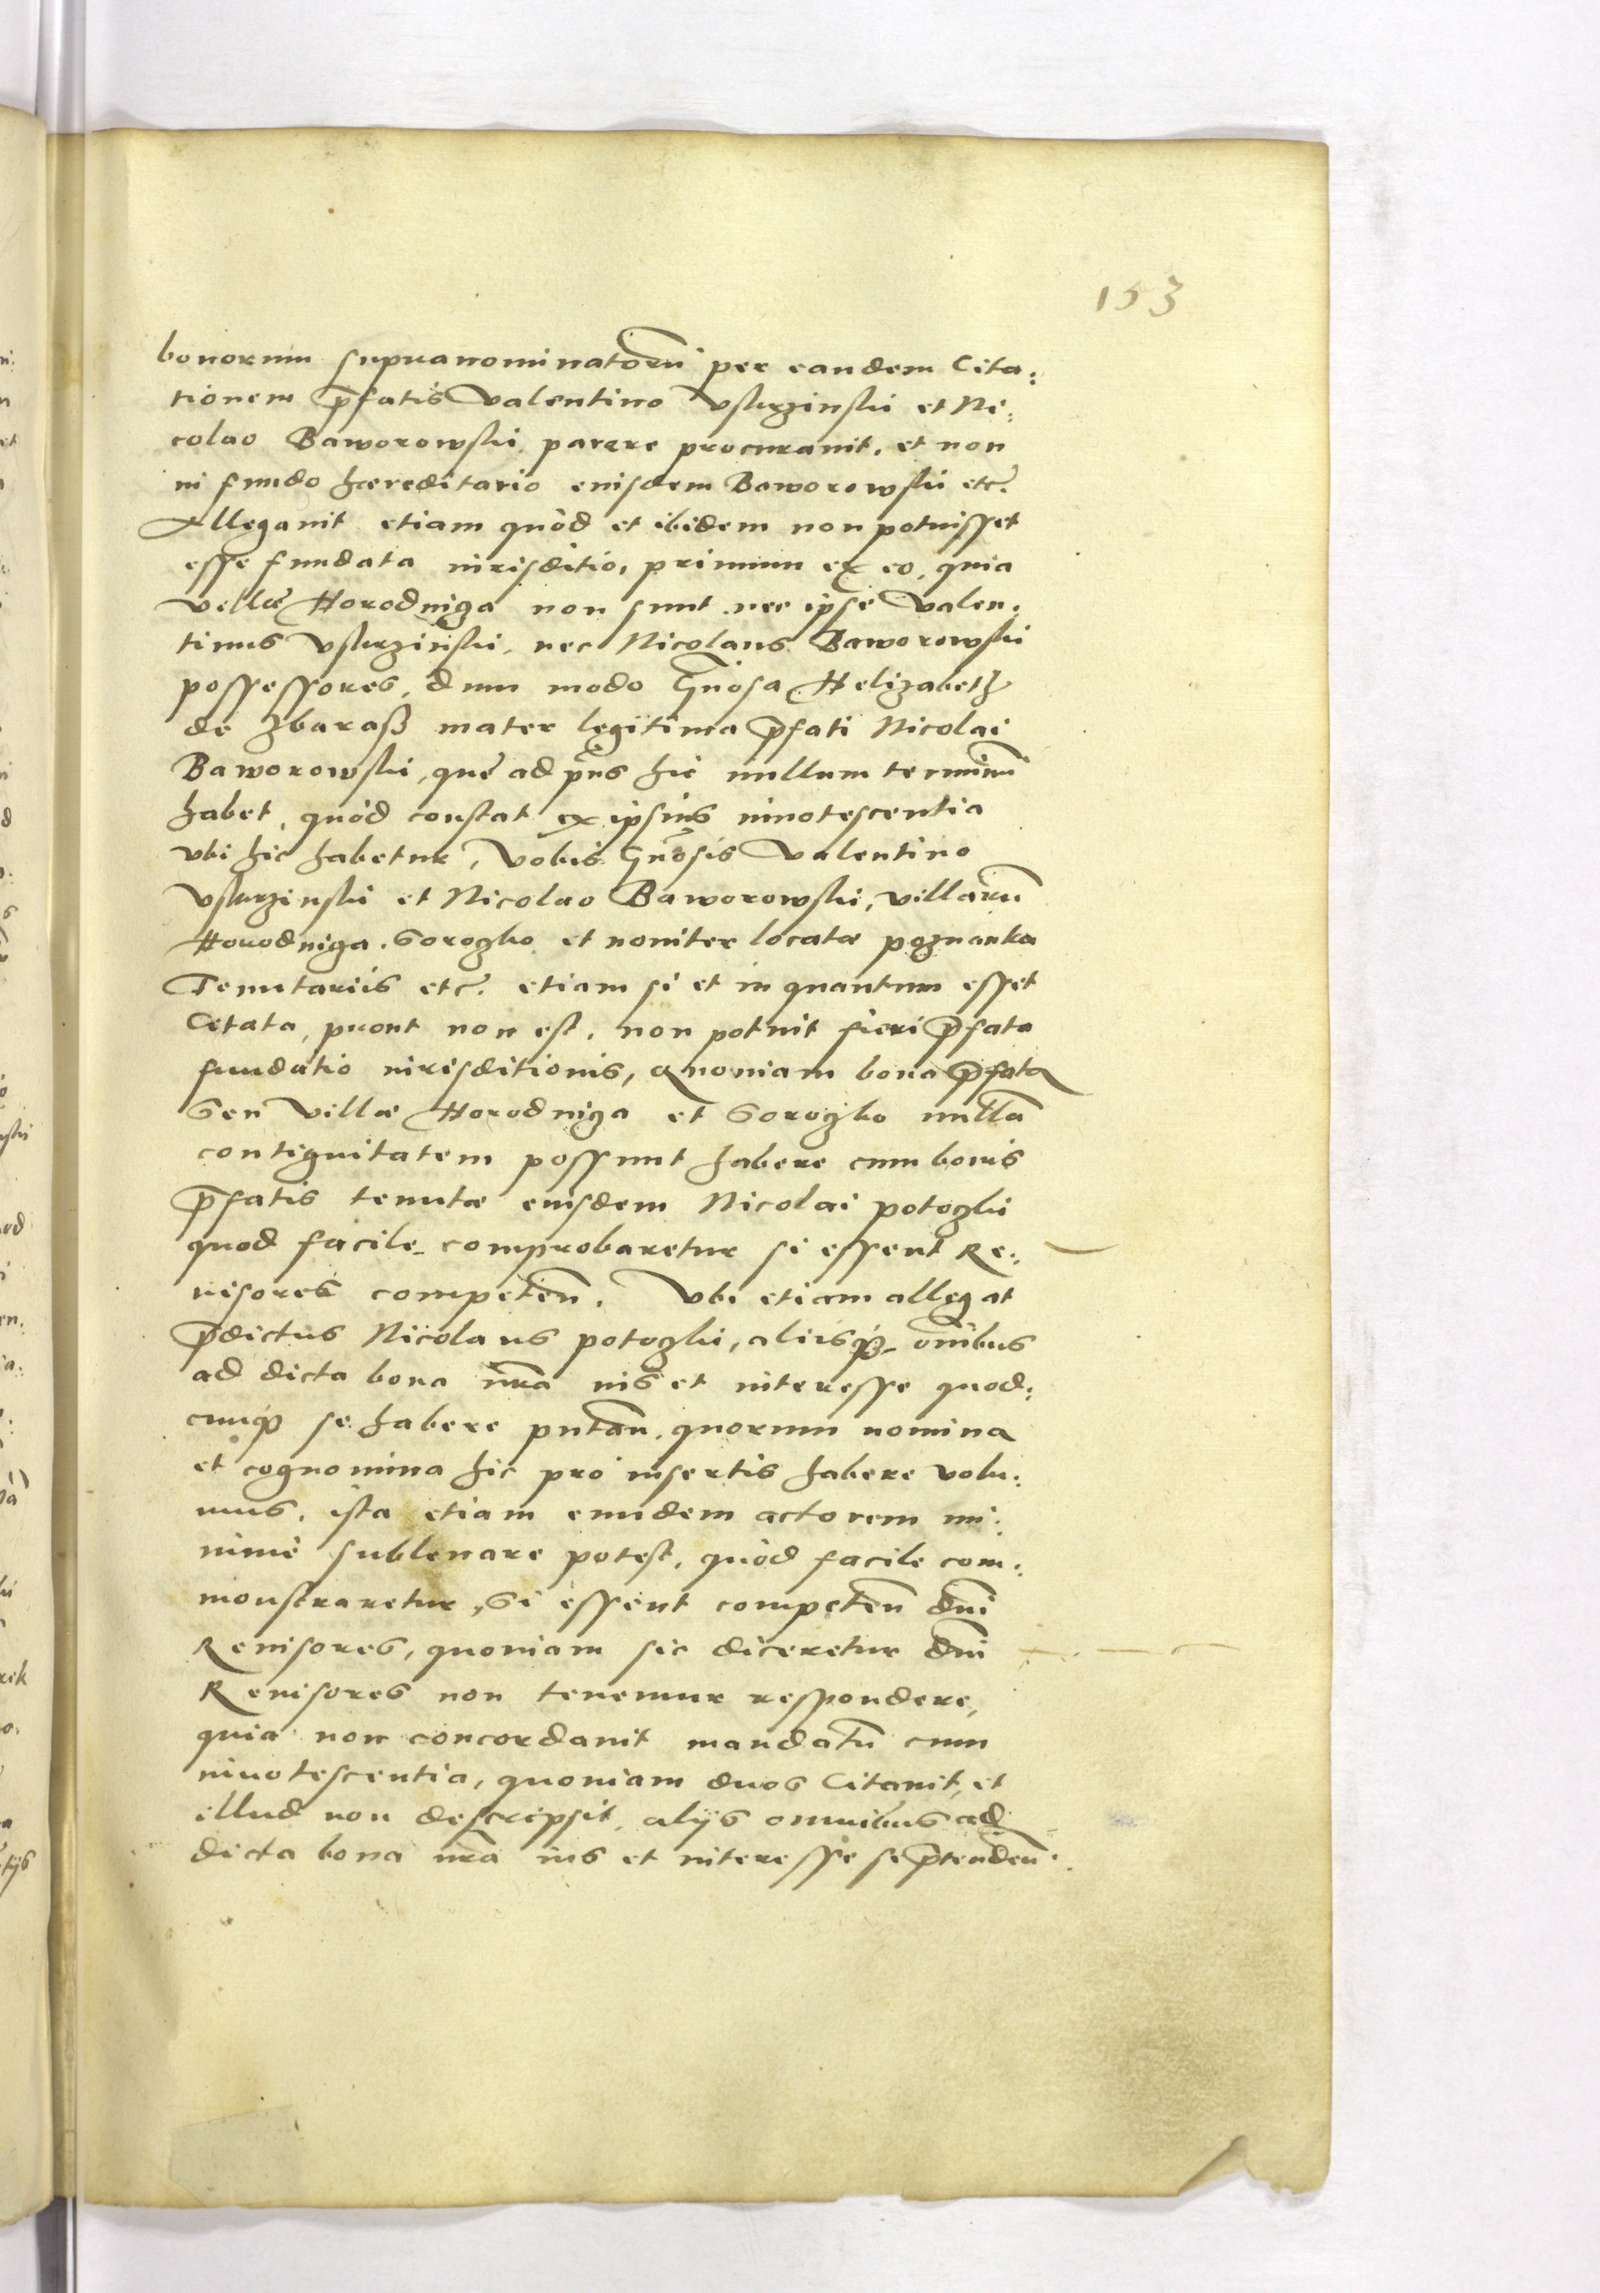 153
bonorum supranominatorũ per eandem Cita:
tionem p̃fatis Valentino Vskrzinski et Ni:
colao Baworowski parere procurauit, et non
in fundo hæreditario euisdem Baworowski etc̃.
Allegauit etiam quòd et ibidem non potuisset
esse fundata iurisditio, primum ex eo, quia
villæ Horodniga non sunt nec ipse Valen:
tinus Vskrzinski, nec Nicolaus Baworowski
possessores, dum modo Gñosa Helizabeth
de Zbaraß mater legitima p̃fati Nicolai
Baworowski, quæ ad p̃ns hic nullum terminũ
habet, quòd constat ex ipsius innotescentia
vbi hic habetur, Vobis Gñosis Valentino
Vskrzinski et Nicolao Baworowski, villarũ
Horodniga. Sorogko et nouiter locatæ poznanka
Tenutariis etc̃. etiam si et in quantum esset
Citata, prout non est, non potuit fieri p̃fata
fundatio iurisditionis, quoniam bona p̃fata
Seu villæ Horodniga et Sorogko nullã
contiguitatem possunt habere cum bonis
p̃fatis tenutæ eiusdem Nicolai potogki
quod facile comprobaretur si essent Re:
uisores competeñ. Vbi etiam allegat
p̃dictus Nicolaus potogki, aliisq̃ om̃ibus
ad dicta bona ñra ius et interesse quod:
cunq̃ se habere putañ. quorum nomina
et cognomina hic pro insertis habere volu:
mus, ista etiam eundem actorem mi:
nimè subleuare potest, quòd facile com:
monstraretur, Si essent competeñ dñi
Reuisores, quoniam sic diceretur dñi
Reuisores non tenemur respondere,
quia non concordauit mandatũ cum
innotescentia, quoniam duos Citauit, et
illud non descripsit, alijs omnibus ad
dicta bona ñra ius et interesse se p̃tendeñ.